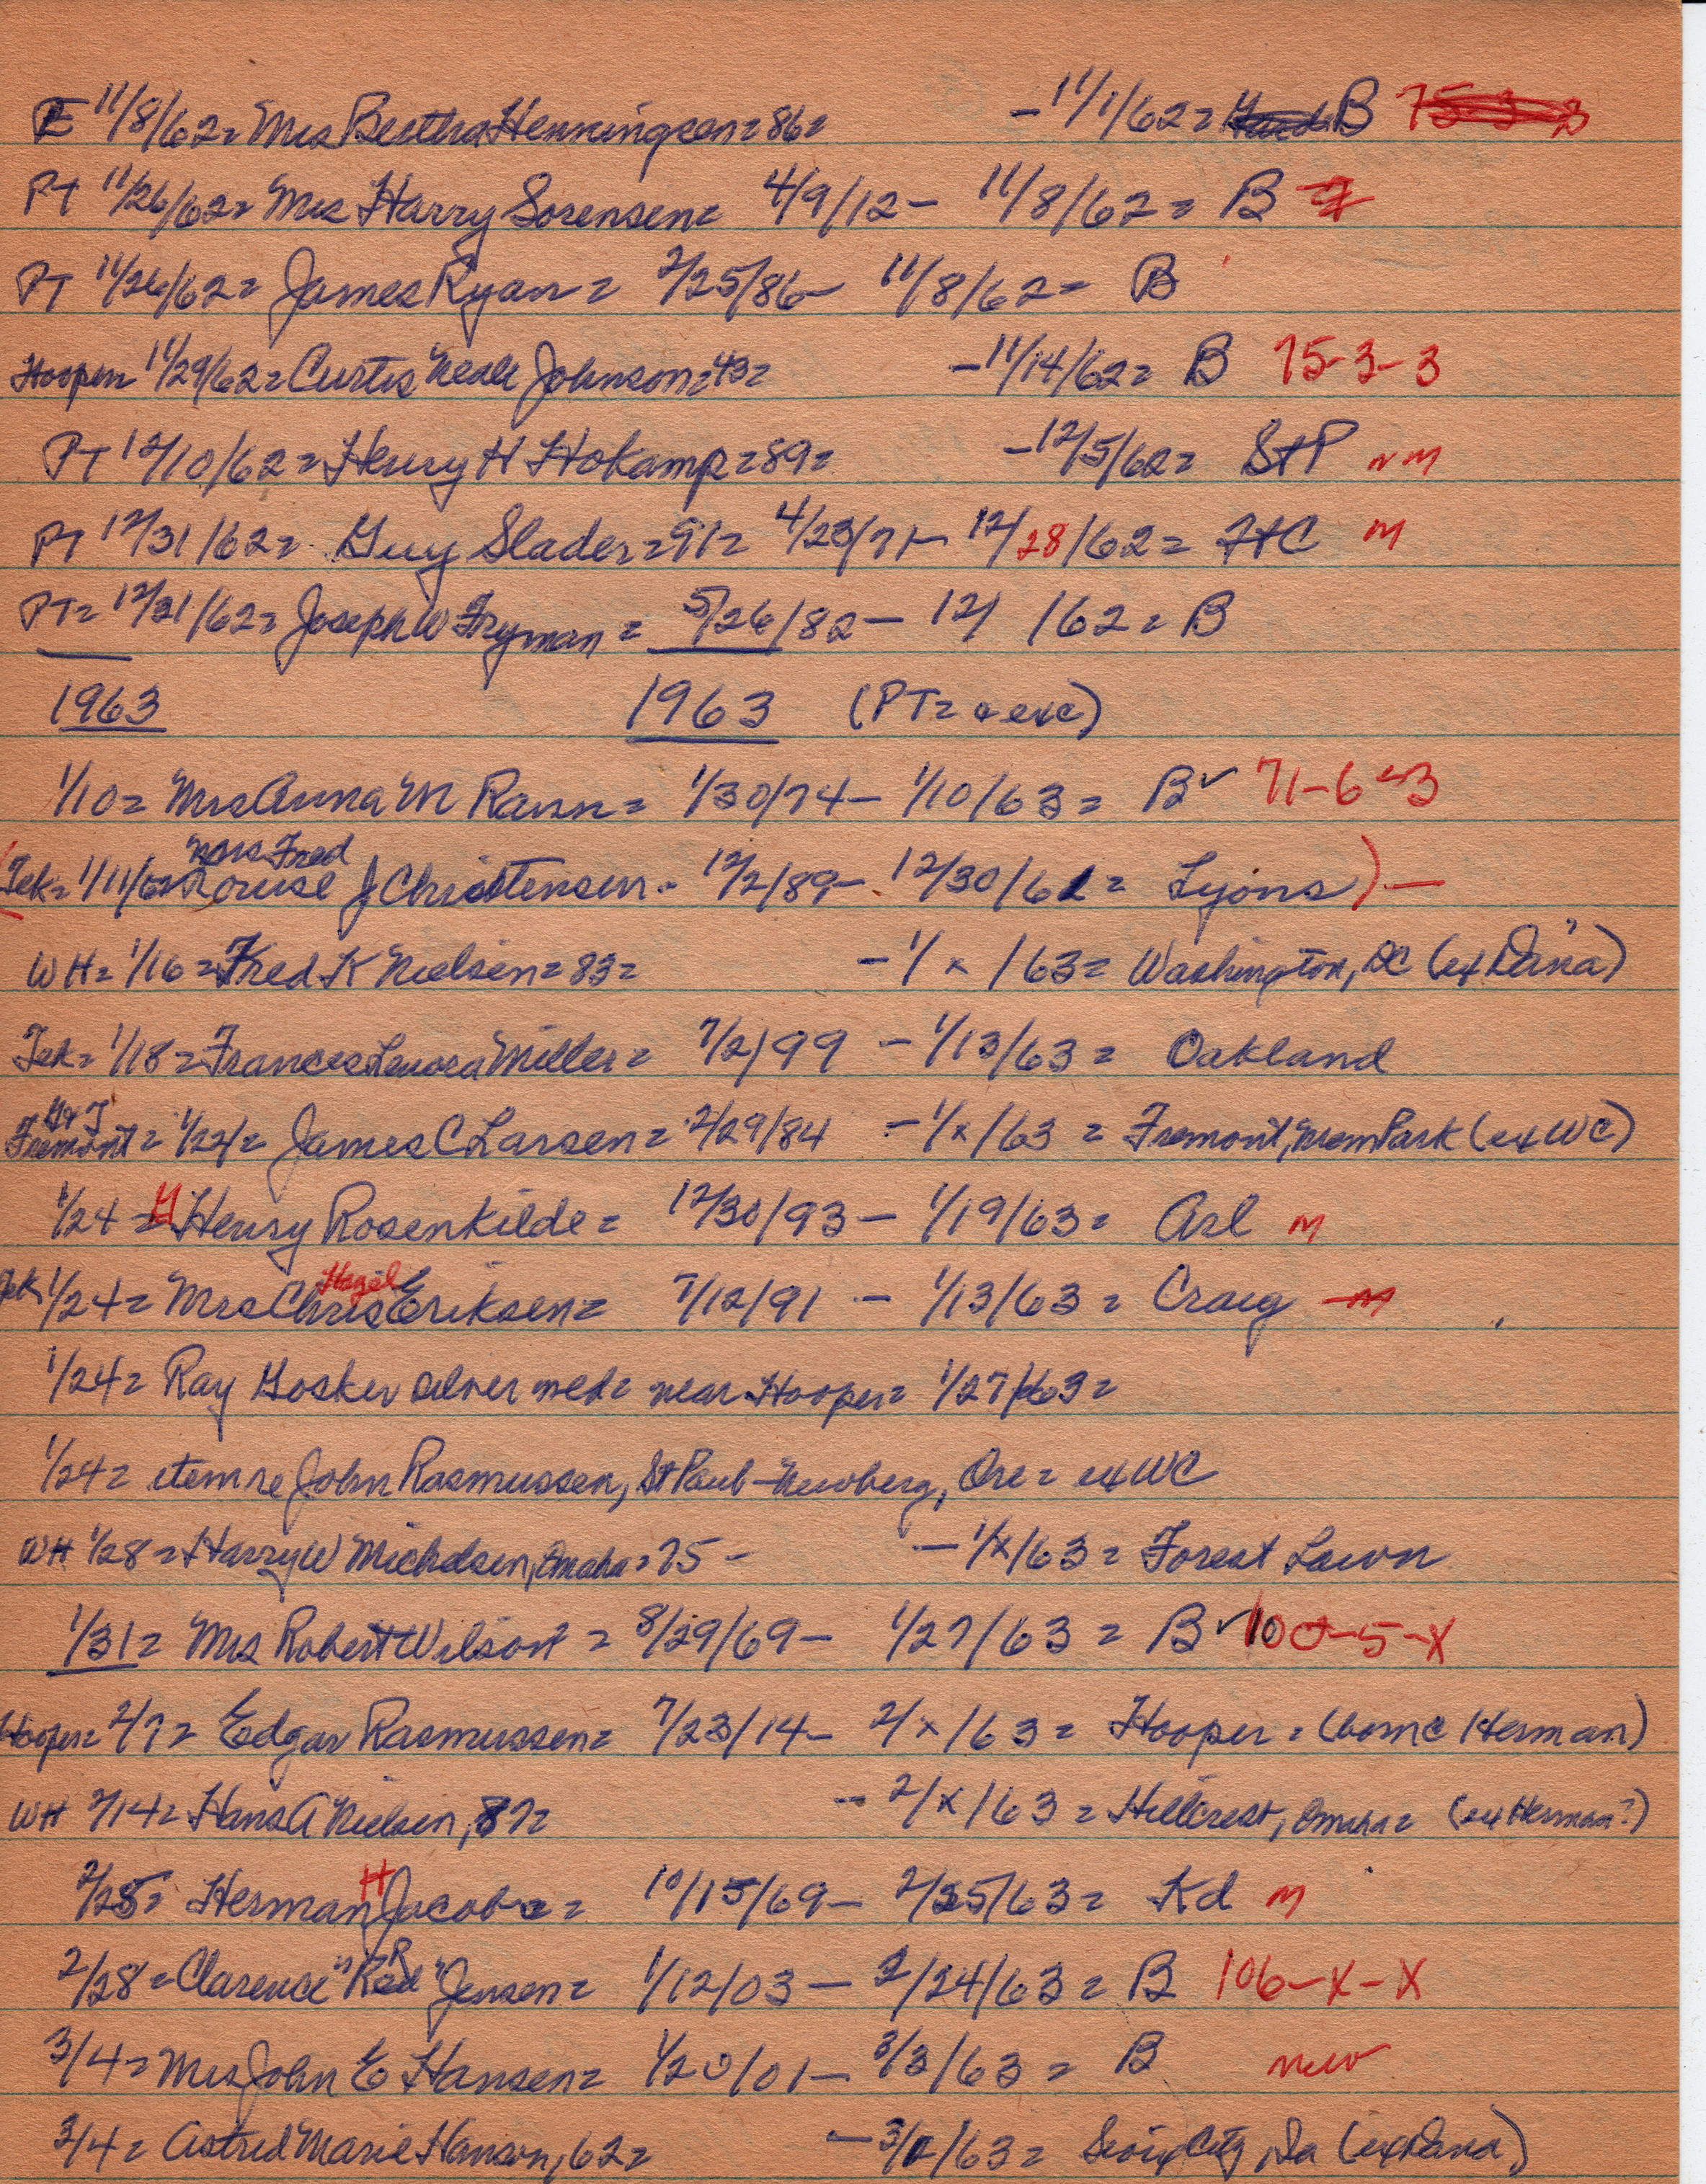 E 11/8/62= Mrs Bertha Henningsen=86= -11/1/62= B 75-3-3
PT 11/26/62= Mrs Harry Sorensen= 4/9/12- 11/8/62= B
PT 11/26/62= James Ryan= 2/25/86- 11/8/62= B
Hooper 11/29/62= Curtis Neale Johnson=43= -11/14/62= B 75-3-3
PT 12/10/62= Henry H Hokamp=89= -12/5/62= StP nm
PT 12/31/62= Guy Slader=91= 4/23/71- 12/28/62= HC m
PT= 12/31/62= Joseph W Fryman= 5/26/82- 12/ /62= B
1963 1963 (PT= & exc)
1/10= Mrs Anna M Ravn= 1/30/74- 1/10/63= B✓ 71-6-3
Mrs Fred
(Tek= 1/11/62 Louise J Christensen- 12/2/89- 12/30/62= Lyons) -
WH= 1/16= Fred K Nielsen=83= -1/x/63= Washington, DC (ex Dana)
Tek= 1/18= Frances Lenora Miller= 7/2/99 -1/13/63= Oakland
G&T
Fremont= 1/22/= James C Larsen= 2/29/84 -1/x/63= Fremont, Mem Park (ex WC)
1/24= H Henry Rosenkilde= 12/30/93- 1/19/63= Arl m
Tek 1/24= Mrs Chris Hazel Eriksen= 7/12/91 - 1/13/63= Craig m
1/24= Ray Gosker silver wed= near Hooper= 1/27/63=
1/24= item re John Rasmussen, St Paul-Newberg, Ore= ex WC
WH 1/28= Harry W Michelsen, Omaha=75- -1/x/63= Forest Lawn
1/31= Mrs Robert Wilson= 8/29/69- 1/27/63= B✓ 100-5-X
Hooper= 2/7= Edgar Rasmussen= 7/23/14- 2/x/63= Hooper= (born c Herman)
WH 2/14= Hans A Nielsen, 87= -2/x/63= Hillcrest, Omaha= (ex Herman?)
2/28= Herman H Jacobs= 10/15/69- 2/25/63= Kd m
2/28= Clarence R "Red" Jensen= 1/12/03- 2/24/63= B 106-X-X
3/4= Mrs John E Hansen= 1/20/01- 3/3/63= B new
3/4= Astred Marie Hanson, 62= -3/1/63= Sioux City, Ia (ex Dana)